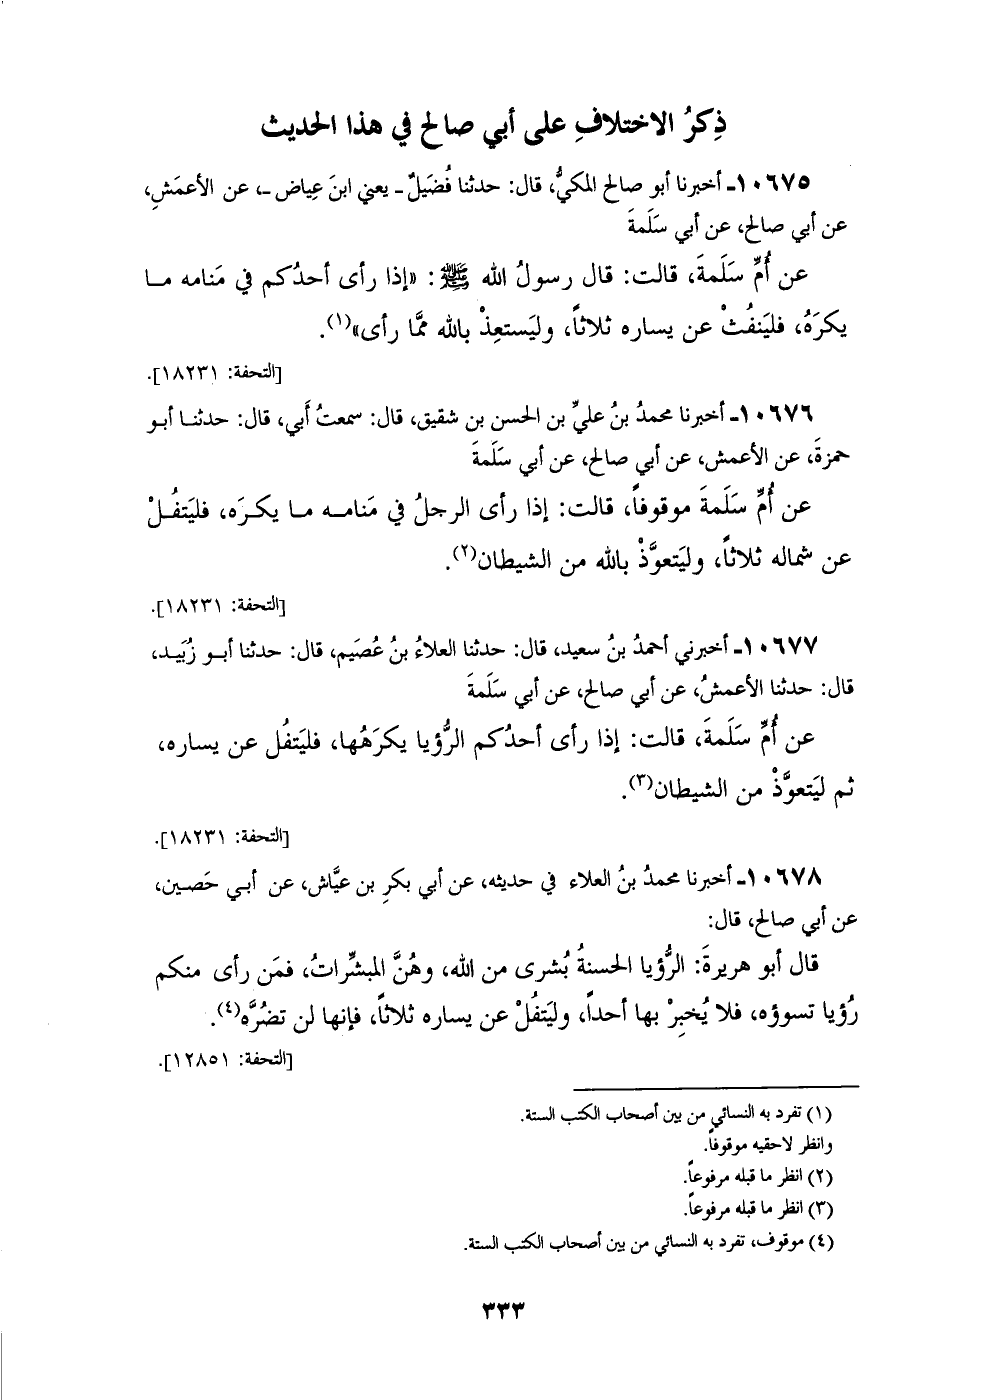 ذِكرُ الاختلافِ على أبي صالح في هذا الحديث
١٠٦٧٥ـ أخبرنا أبو صالح المكيُّ، قال: حدثنا فُضَيلٌ ـ يعني ابنَ عِياض ـ، عن الأعمَشِ،
عن أبي صالح، عن أبي سَلَمةَ
عن أُمِّ سَلَمةَ، قالت: قال رسولُ الله ﷺ: «إذا رأى أحدُكم في مَنامه مـا
يكرَهُ، فليَنفُثْ عن يساره ثلاثاً، وليَستعِذْ بالله ممَّا رأى»(١).
[التحفة: ١٨٢٣١].
١٠٦٧٦ـ أخبرنا محمدُ بنُ عليِّ بن الحسن بن شقيق، قال: سمعتُ أَبي، قال: حدثنـا أبـو
حمزةَ، عن الأعمش، عن أبي صالح، عن أبي سَلَمةَ
عن أُمِّ سَلَمةَ موقوفاً، قالت: إذا رأى الرجلُ في مَنامـه مـا يكـرَه، فليَتفُـلْ
عن شماله ثلاثاً، وليَتعوَّذْ بالله من الشيطان(٢).
[التحفة: ١٨٢٣١].
١٠٦٧٧ـ أخبرني أحمدُ بنُ سعيد، قال: حدثنا العلاءُ بنُ عُصَيم، قال: حدثنا أبـو زُبَيـد،
قال: حدثنا الأعمشُ، عن أبي صالح، عن أبي سَلَمةَ
عن أُمِّ سَلَمةَ، قالت: إذا رأى أحدُكم الرُّؤيا يكرَهُها، فليَتفُل عن يساره،
ثم ليَتعوَّذْ من الشيطان(٣).
[التحفة: ١٨٢٣١].
١٠٦٧٨ـ أخبرنا محمدُ بنُ العلاء في حديثه، عن أبي بكرِ بن عيَّاش، عن أبـي حَصـين،
عن أبي صالح، قال:
قال أبو هريرةَ: الرُّؤيا الحسنةُ بُشرى من الله، وهُنَّ المبشِّراتُ، فمَن رأى منكم
رُؤيا تسوؤه، فلا يُخبِرْ بها أحداً، وليَتفُلْ عن يساره ثلاثاً، فإنها لن تضُرَّه(٤).
[التحفة: ١٢٨٥١].
(١) تفرد به النسائي من بين أصحاب الكتب الستة.
وانظر لاحقيه موقوفاً.
(٢) انظر ما قبله مرفوعاً.
(٣) انظر ما قبله مرفوعاً.
(٤) موقوف، تفرد به النسائي من بين أصحاب الكتب الستة.
٣٣٣